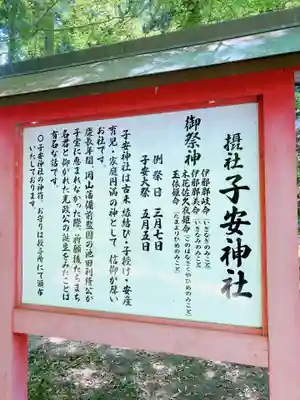 摂社 子安神社
御祭神
伊邪那岐命(いざなぎのみこと)
伊邪那美命(いざなみのみこと)
木花佐久夜姫命(このはなさくやひめのみこと)
玉依姫命(たまよりひめのみこと)
例祭日 三月七日
子安大祭 五月五日
子安神社は古来縁結び・子授け・安産
育児・家庭円満の神として信仰が厚い
お社です。
慶長年間、岡山藩備前監国の池田利隆公が
子宝に恵まれなかった際、祈願後たちまち
名君と仰がれた光政公の誕生をみたことは
有名な話です。
〇子安神社の神符、お守りは授与所にて頒布
いたしております。